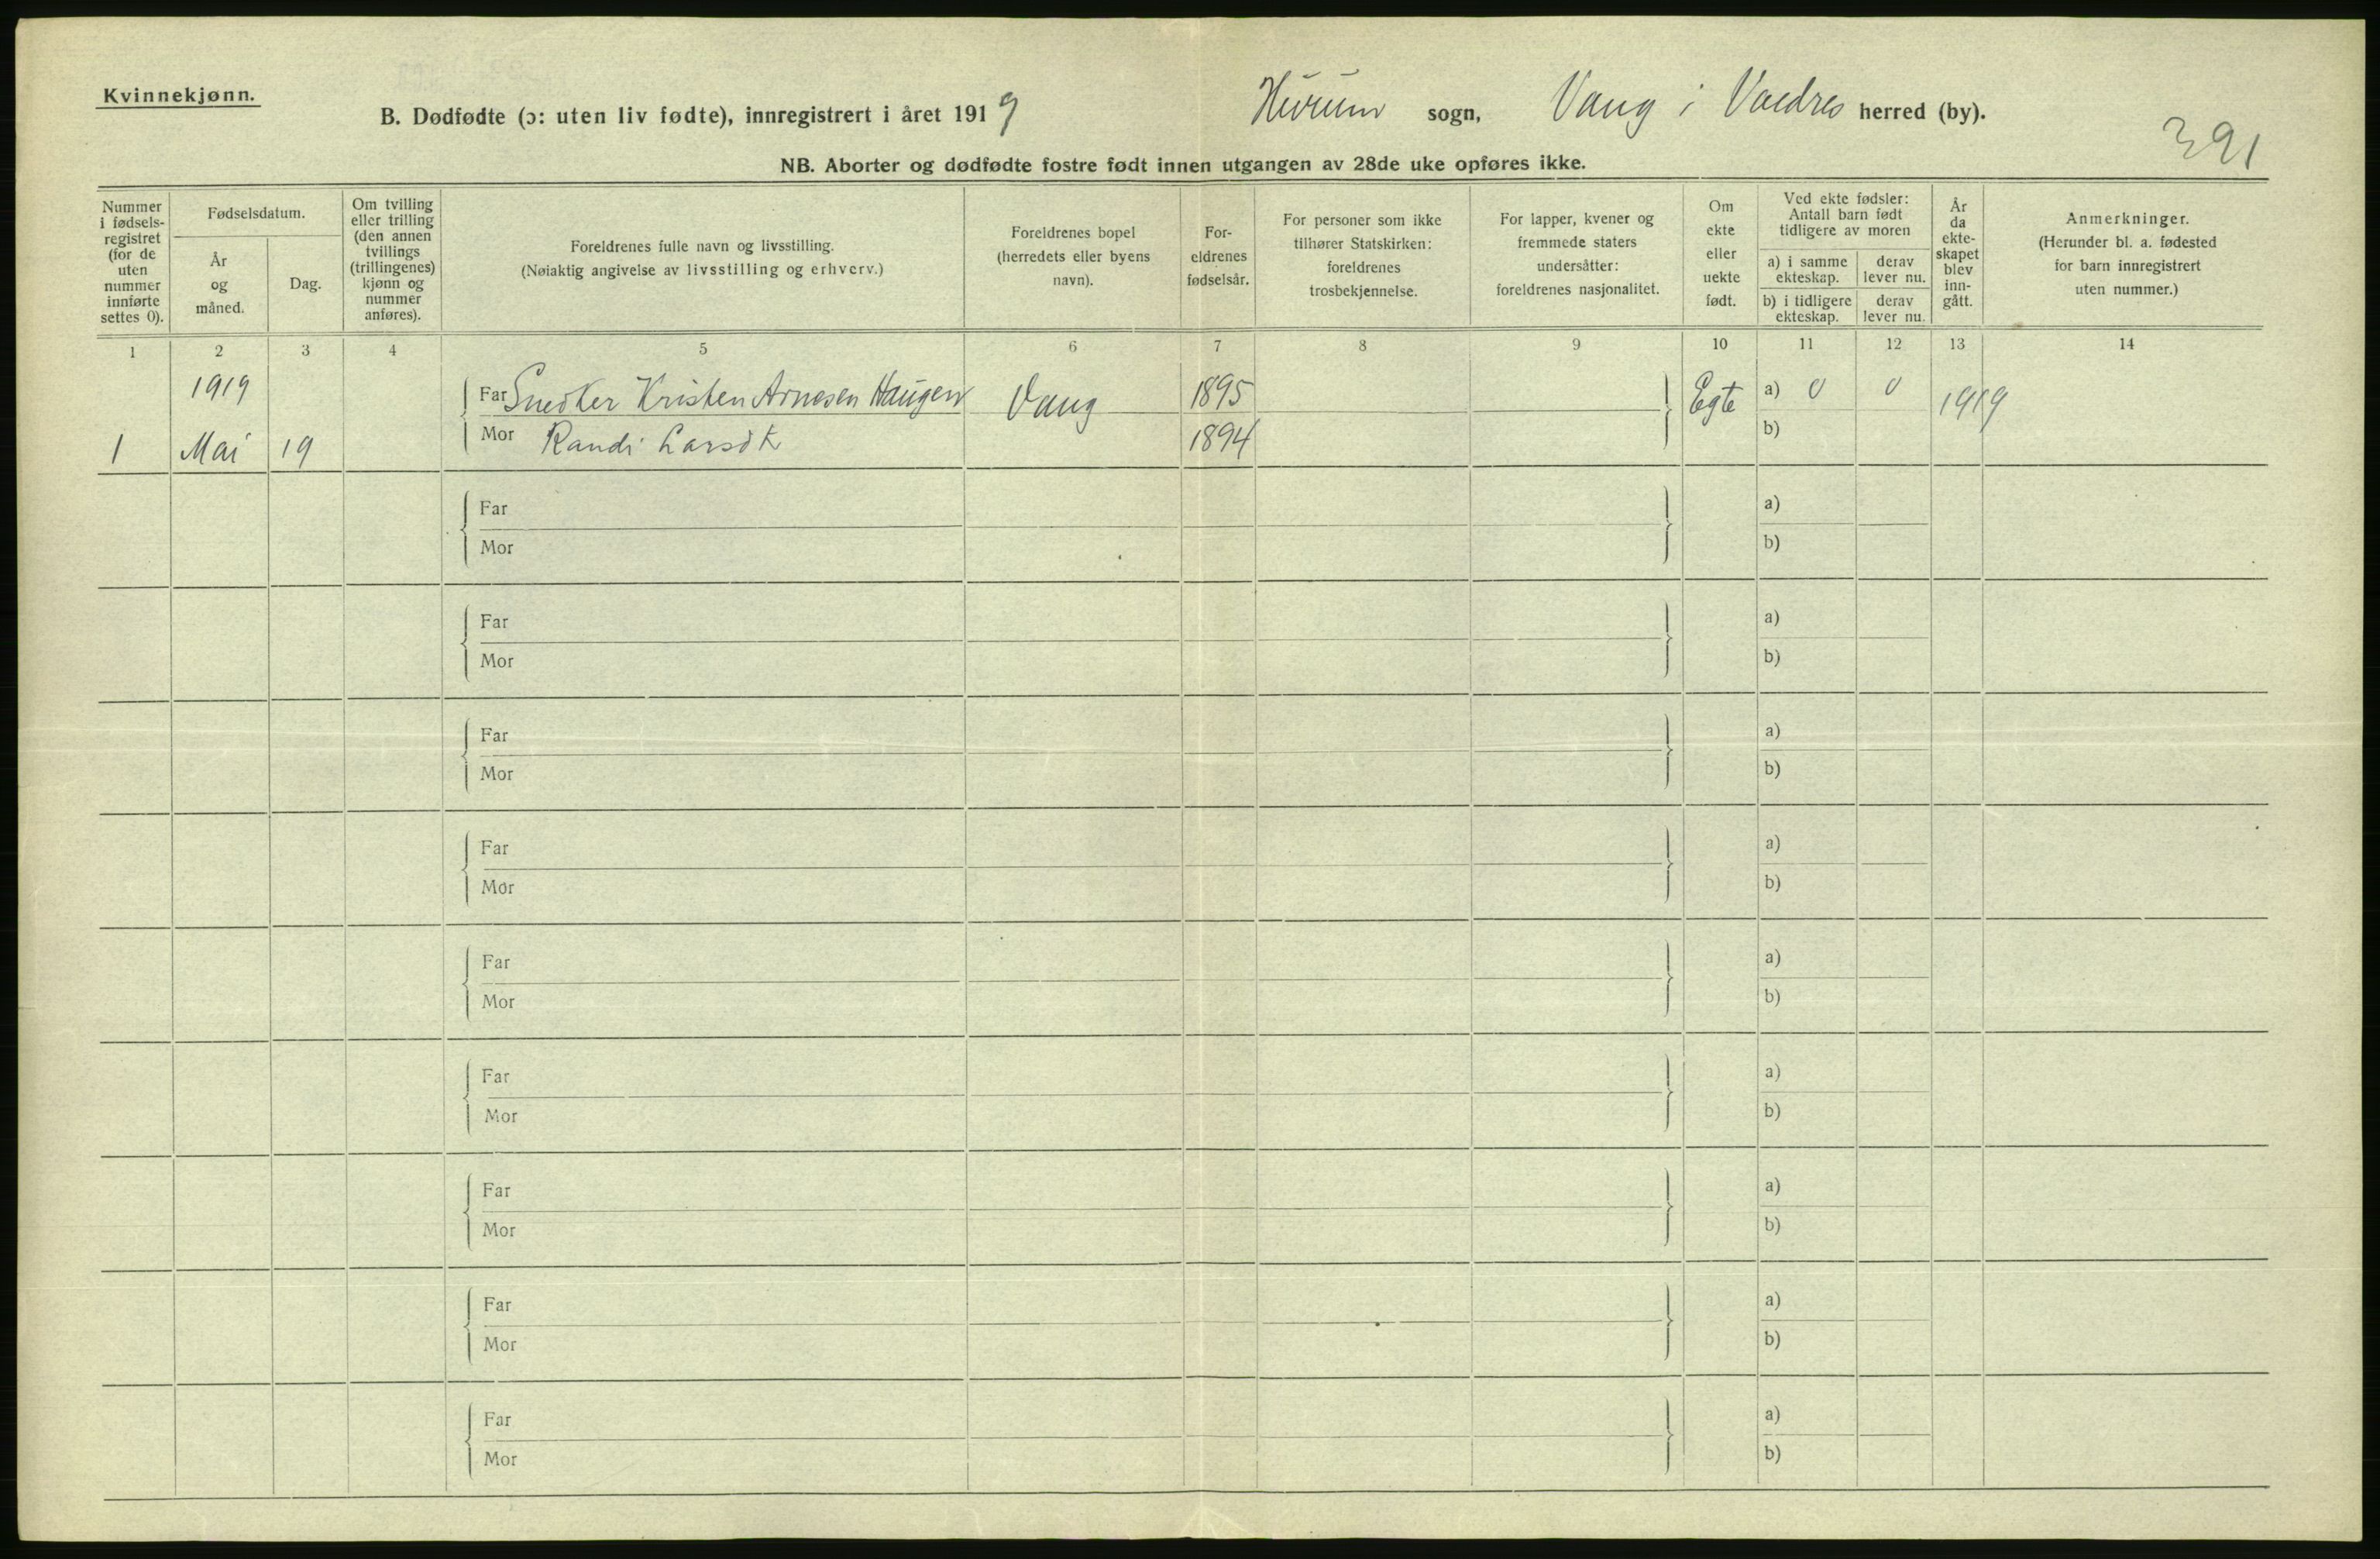 Kvinnekjønn.
B. Dødfødte (ɔ: uten liv fødte), innregistrert i året 1919 Hurum sogn, Vang i Valdres herred (by).
391
NB. Aborter og dødfødte fostre født innen utgangen av 28de uke opføres ikke.
Nummer i fødsels-registret (for de uten nummer innførte settes 0).
Fødselsdatum.
År og måned.
Dag.
Om tvilling eller trilling (den annen tvillings (trillingenes) kjønn og nummer anføres).
Foreldrenes fulle navn og livsstilling.
(Nøiaktig angivelse av livsstilling og erhverv.)
Foreldrenes bopel (herredets eller byens navn).
For-eldrenes fødselsår.
For personer som ikke tilhører Statskirken: foreldrenes trosbekjennelse.
For lapper, kvener og fremmede staters undersåtter: foreldrenes nasjonalitet.
Om ekte eller uekte født.
Ved ekte fødsler: Antall barn født tidligere av moren
a) i samme ekteskap.
derav lever nu.
b) i tidligere ekteskap.
derav lever nu.
År da ekte-skapet blev inn-gått.
Anmerkninger.
(Herunder bl. a. fødested for barn innregistrert uten nummer.)
1 2 3 4 5 6 7 8 9 10 11 12 13 14
1919 Far Snedker Kristen Arnesen Haugen Vang 1895 Egte a) 0 0 1919
1 Mai 19 Mor Randi Larsdt 1894 b)
Far a)
Mor b)
Far a)
Mor b)
Far a)
Mor b)
Far a)
Mor b)
Far a)
Mor b)
Far a)
Mor b)
Far a)
Mor b)
Far a)
Mor b)
Far a)
Mor b)